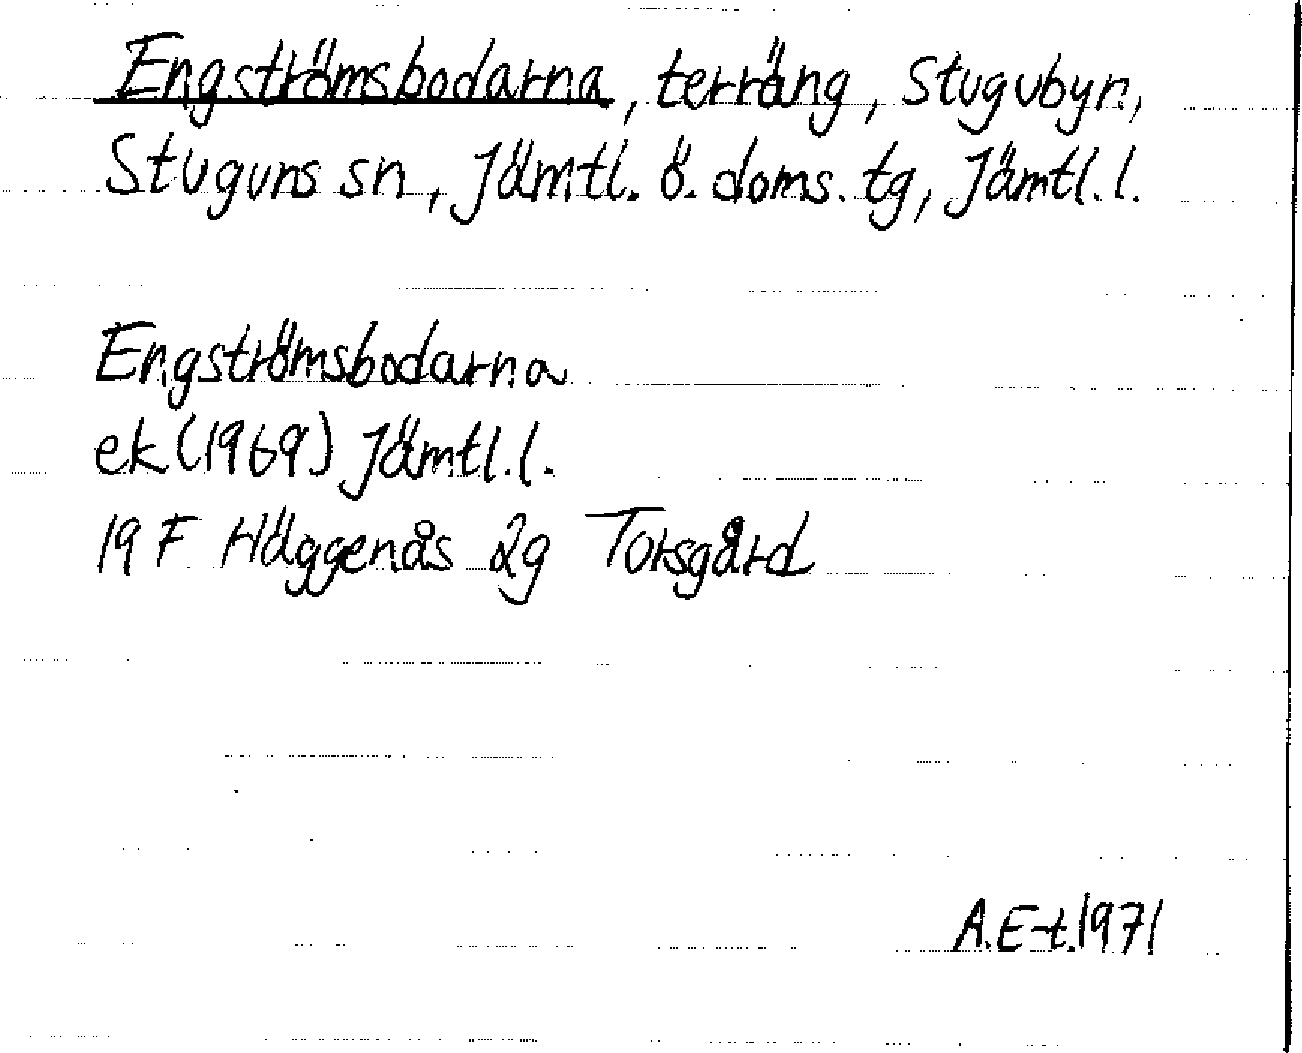 Engströmsbodarna, terräng, Stugubyn,
Stuguns sn, Jämtl. ö. doms. tg, Jämtl. l.
Engströmsbodarna
ek (1969) Jämtl. l.
19 F Häggenås 2g Torsgård
A.E-t. 1971